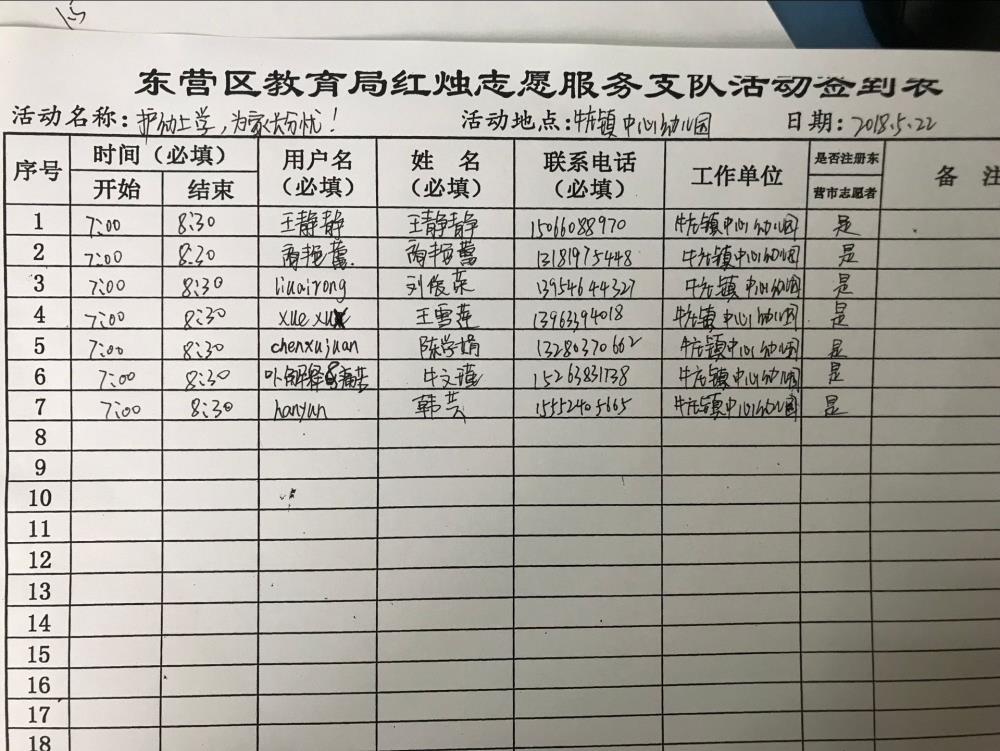 东营区教育局红烛志愿服务支队活动签到表
活动名称：护幼上学，为家长分忧！ 活动地点：牛庄镇中心幼儿园 日期：2018.5.22
序号 时间（必填） 用户名（必填） 姓 名（必填） 联系电话（必填） 工作单位 是否注册东营市志愿者 备 注
开始 结束
1 7:00 8:30 王静静 王静静 15066088970 牛庄镇中心幼儿园 是
2 7:00 8:30 13181975448 牛庄镇中心幼儿园 是
3 7:00 8:30 liuairong 刘俊荣 13954644327 牛庄镇中心幼儿园 是
4 7:00 8:30 王雪莲 13963394018 牛庄镇中心幼儿园 是
5 7:00 8:30 chenxujuan 陈学娟 13280370662 牛庄镇中心幼儿园 是
6 7:00 8:30 牛文瑾 15263831738 牛庄镇中心幼儿园 是
7 7:00 8:30 hanyun 韩芸 15552405665 牛庄镇中心幼儿园 是
8
9
10
11
12
13
14
15
16
17
18